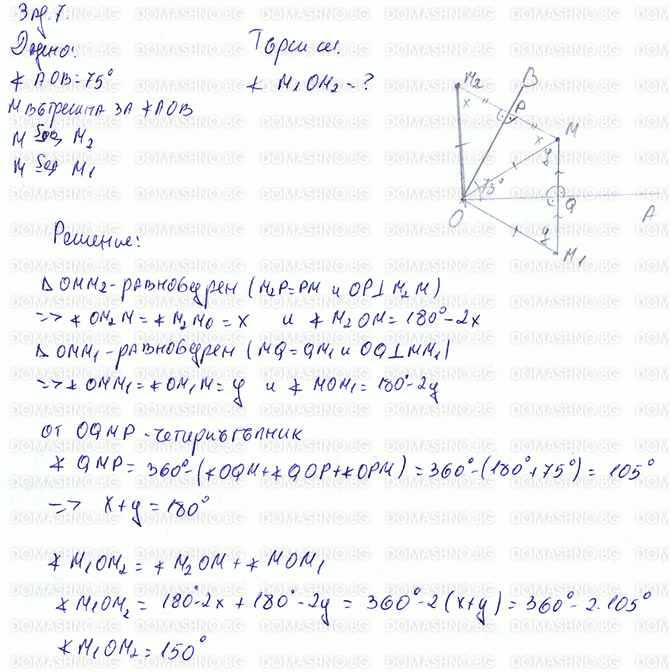 Зад. 7.
Дадено:
∢ AOB = 75°
M вътрешна за ∢AOB
M M₂
M M₁
Търси се:
∢ M₁OM₂ - ?
M₂
B
P
x
x
M
y
75°
O
Q
A
y
M₁
Решение:
Δ OMM₂ - равнобедрен (M₂P = PM и OP ⊥ M₂M)
=> ∢ OM₂M = ∢ M₂MO = x и ∢ M₂OM = 180° - 2x
Δ OMM₁ - равнобедрен (MQ = QM₁ и OQ ⊥ MM₁)
=> ∢ OMM₁ = ∢ OM₁M = y и ∢ MOM₁ = 180° - 2y
от OQMP - четириъгълник
∢ QMP = 360° - (∢OQM + ∢QOP + ∢OPM) = 360° - (180° + 75°) = 105°
=> x + y = 180°
∢ M₁OM₂ = ∢ M₂OM + ∢ MOM₁
∢ M₁OM₂ = 180° - 2x + 180° - 2y = 360° - 2(x+y) = 360° - 2.105°
∢ M₁OM₂ = 150°